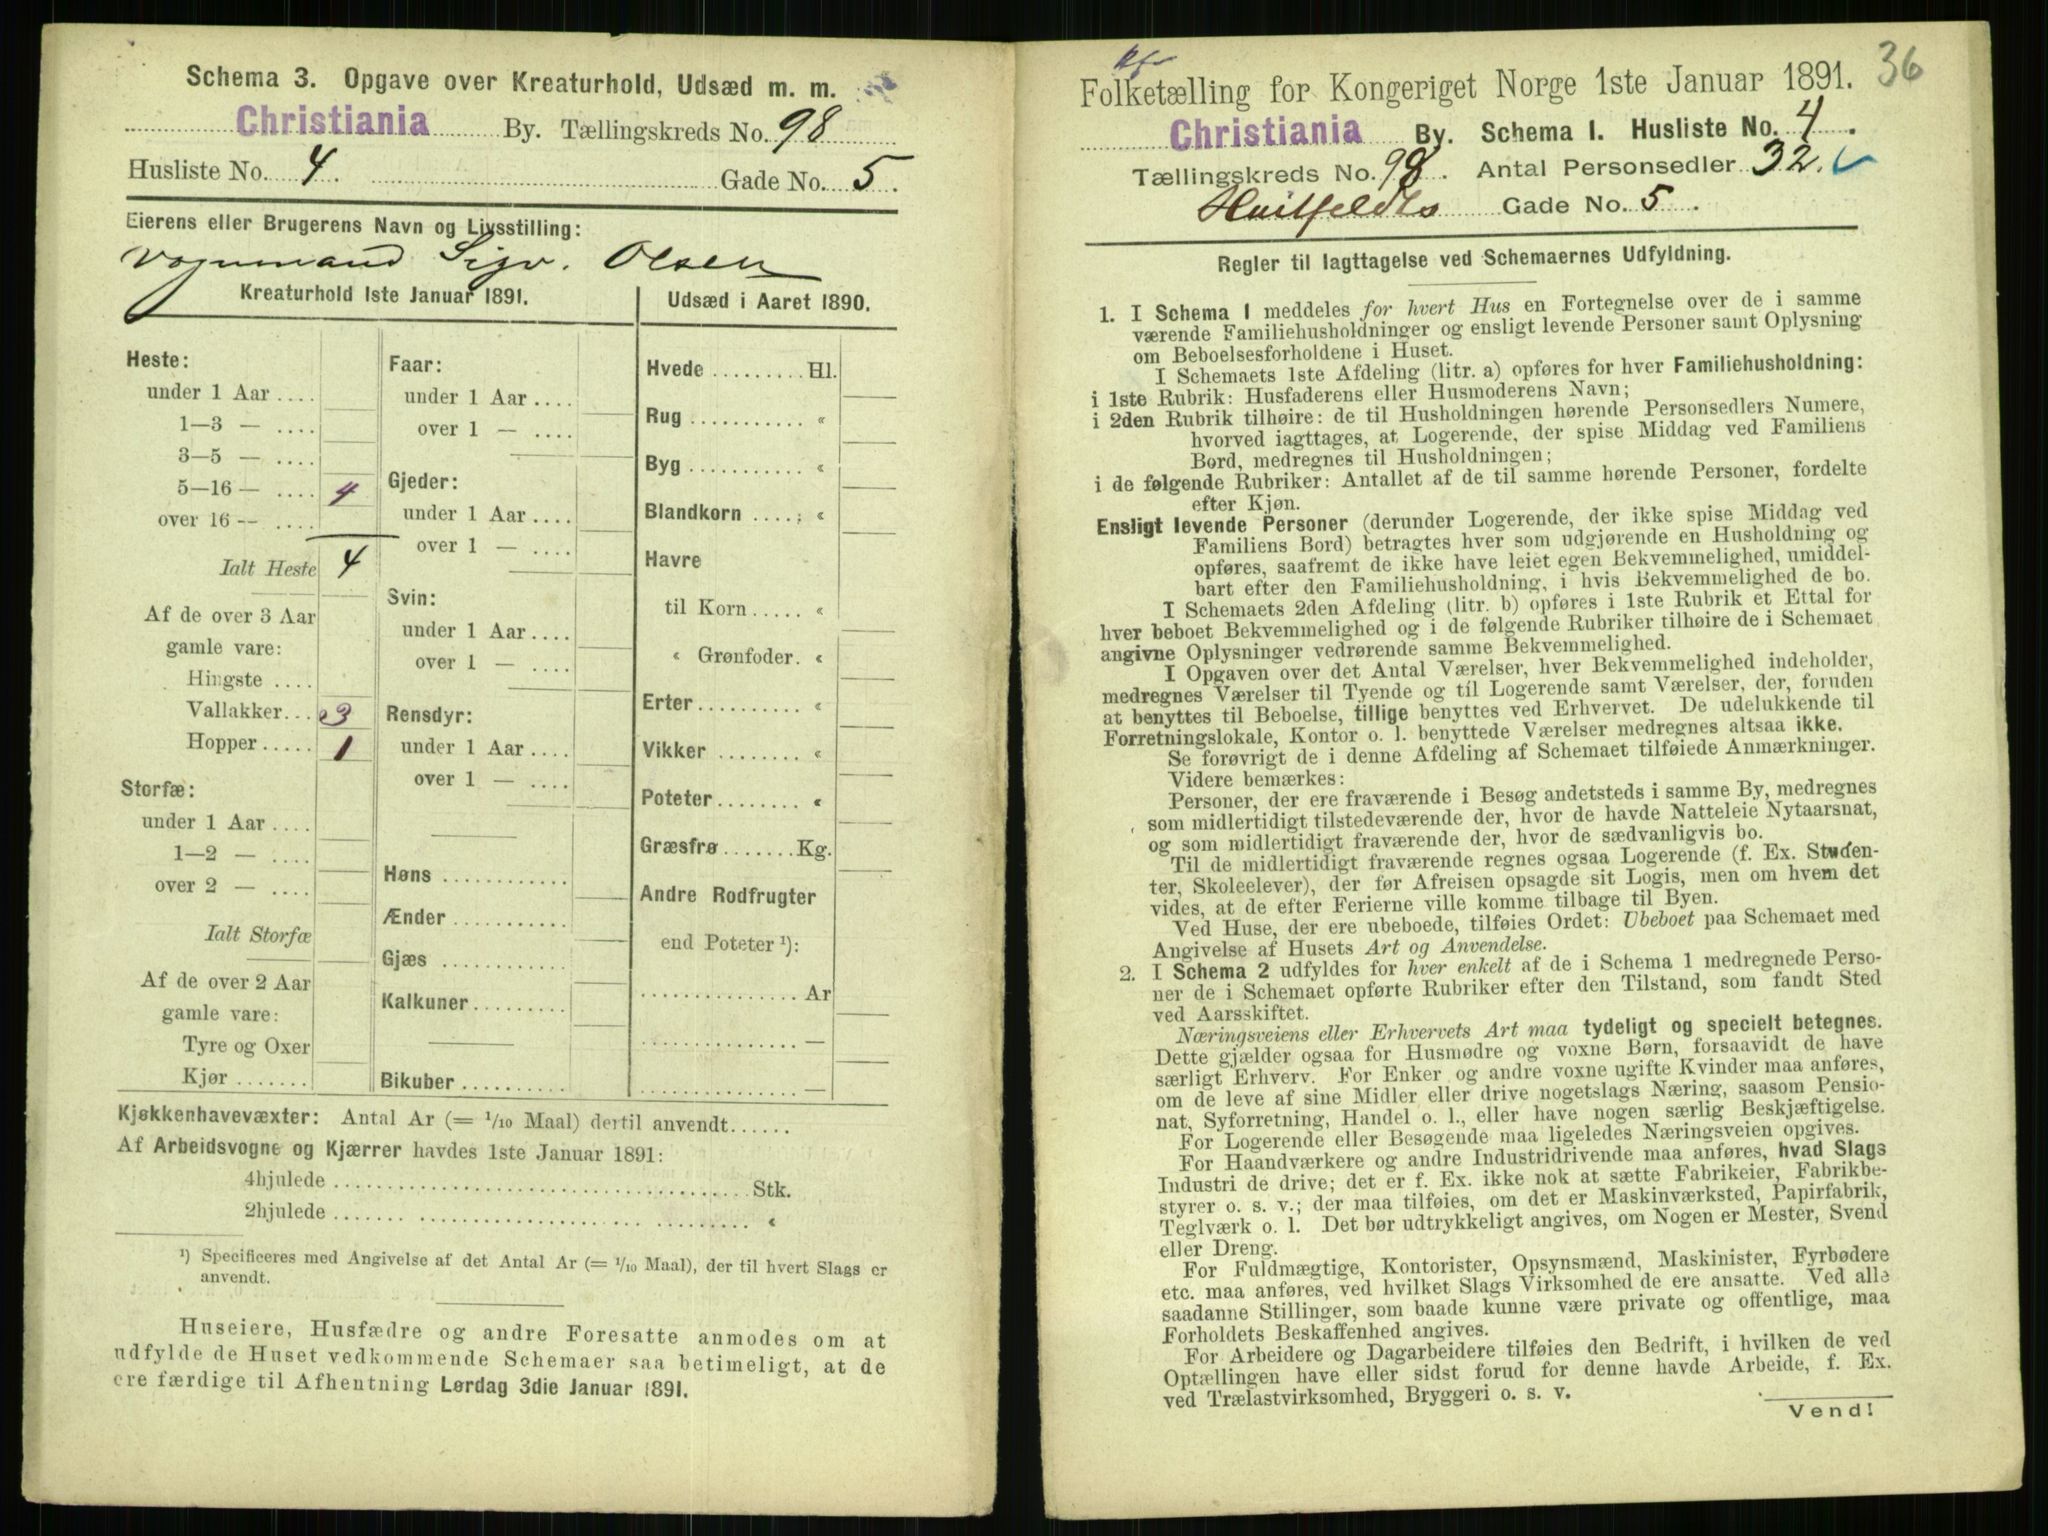 Schema 3. Opgave over Kreaturhold, Udsæd m. m.
Christiania By. Tællingskreds No. 98
Husliste No. 4. Gade No. 5.
Eierens eller Brugerens Navn og Livsstilling:
Vognmand Sigv. Olsen
Kreaturhold 1ste Januar 1891.
Heste:
under 1 Aar ....
1—3 — ....
3—5 — ....
5—16 — .... 4
over 16 — ....
Ialt Heste 4
Af de over 3 Aar
gamle vare:
Hingste ....
Vallakker... 3
Hopper..... 1
Storfæ:
under 1 Aar ....
1—2 — ....
over 2 — ....
Ialt Storfæ
Af de over 2 Aar
gamle vare:
Tyre og Oxer
Kjør .......
Faar:
under 1 Aar ....
over 1 — ....
Gjeder:
under 1 Aar ....
over 1 — ....
Svin:
under 1 Aar ....
over 1 — ....
Rensdyr:
under 1 Aar ....
over 1 — ....
Høns ...........
Ænder ..........
Gjæs ...........
Kalkuner.........
Bikuber ..........
Udsæd i Aaret 1890.
Hvede ......... Hl.
Rug ........... «
Byg ........... «
Blandkorn ..... «
Havre
til Korn ..... «
« Grønfoder. «
Erter .......... «
Vikker ........ «
Poteter ........ «
Græsfrø ....... Kg.
Andre Rodfrugter
end Poteter ¹):
............... Ar
............... —
............... —
Kjøkkenhavevæxter: Antal Ar (= 1/10 Maal) dertil anvendt......
Af Arbeidsvogne og Kjærrer havdes 1ste Januar 1891:
4hjulede ........................................ Stk.
2hjulede ........................................ «
¹) Specificeres med Angivelse af det Antal Ar (= 1/10 Maal), der til hvert Slags er
anvendt.
Huseiere, Husfædre og andre Foresatte anmodes om at
udfylde de Huset vedkommende Schemaer saa betimeligt, at de
ere færdige til Afhentning Lørdag 3die Januar 1891.
36
Folketælling for Kongeriget Norge 1ste Januar 1891.
Christiania By. Schema I. Husliste No. 4.
Tællingskreds No. 98. Antal Personsedler 32.
Huitfeldts Gade No. 5.
Regler til Iagttagelse ved Schemaernes Udfyldning.
1. I Schema 1 meddeles for hvert Hus en Fortegnelse over de i samme
værende Familiehusholdninger og ensligt levende Personer samt Oplysning
om Beboelsesforholdene i Huset.
I Schemaets 1ste Afdeling (litr. a) opføres for hver Familiehusholdning:
i 1ste Rubrik: Husfaderens eller Husmoderens Navn;
i 2den Rubrik tilhøire: de til Husholdningen hørende Personsedlers Numere,
hvorved iagttages, at Logerende, der spise Middag ved Familiens
Bord, medregnes til Husholdningen;
i de følgende Rubriker: Antallet af de til samme hørende Personer, fordelte
efter Kjøn.
Ensligt levende Personer (derunder Logerende, der ikke spise Middag ved
Familiens Bord) betragtes hver som udgjørende en Husholdning og
opføres, saafremt de ikke have leiet egen Bekvemmelighed, umiddel-
bart efter den Familiehusholdning, i hvis Bekvemmelighed de bo.
I Schemaets 2den Afdeling (litr. b) opføres i 1ste Rubrik et Ettal for
hver beboet Bekvemmelighed og i de følgende Rubriker tilhøire de i Schemaet
angivne Oplysninger vedrørende samme Bekvemmelighed.
I Opgaven over det Antal Værelser, hver Bekvemmelighed indeholder,
medregnes Værelser til Tyende og til Logerende samt Værelser, der, foruden
at benyttes til Beboelse, tillige benyttes ved Erhvervet. De udelukkende til
Forretningslokale, Kontor o. l. benyttede Værelser medregnes altsaa ikke.
Se forøvrigt de i denne Afdeling af Schemaet tilføiede Anmærkninger.
Videre bemærkes:
Personer, der ere fraværende i Besøg andetsteds i samme By, medregnes
som midlertidigt tilstedeværende der, hvor de havde Natteleie Nytaarsnat,
og som midlertidigt fraværende der, hvor de sædvanligvis bo.
Til de midlertidigt fraværende regnes ogsaa Logerende (f. Ex. Studen-
ter, Skoleelever), der før Afreisen opsagde sit Logis, men om hvem det
vides, at de efter Ferierne ville komme tilbage til Byen.
Ved Huse, der ere ubeboede, tilføies Ordet: Ubeboet paa Schemaet med
Angivelse af Husets Art og Anvendelse.
2. I Schema 2 udfyldes for hver enkelt af de i Schema 1 medregnede Perso-
ner de i Schemaet opførte Rubriker efter den Tilstand, som fandt Sted
ved Aarsskiftet.
Næringsveiens eller Erhvervets Art maa tydeligt og specielt betegnes.
Dette gjælder ogsaa for Husmødre og voxne Børn, forsaavidt de have
særligt Erhverv. For Enker og andre voxne ugifte Kvinder maa anføres,
om de leve af sine Midler eller drive nogetslags Næring, saasom Pensio-
nat, Syforretning, Handel o. l., eller have nogen særlig Beskjæftigelse.
For Logerende eller Besøgende maa ligeledes Næringsveien opgives.
For Haandværkere og andre Industridrivende maa anføres, hvad Slags
Industri de drive; det er f. Ex. ikke nok at sætte Fabrikeier, Fabrikbe-
styrer o. s. v.; der maa tilføies, om det er Maskinværksted, Papirfabrik,
Teglværk o. l. Det bør udtrykkeligt angives, om Nogen er Mester, Svend
eller Dreng.
For Fuldmægtige, Kontorister, Opsynsmænd, Maskinister, Fyrbødere
etc. maa anføres, ved hvilket Slags Virksomhed de ere ansatte. Ved alle
saadanne Stillinger, som baade kunne være private og offentlige, maa
Forholdets Beskaffenhed angives.
For Arbeidere og Dagarbeidere tilføies den Bedrift, i hvilken de ved
Optællingen have eller sidst forud for denne havde Arbeide, f. Ex.
ved Trælastvirksomhed, Bryggeri o. s. v.
Vend!